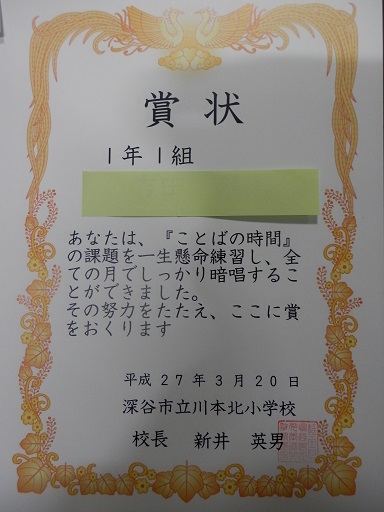 賞状
1年1組
あなたは、『ことばの時間』
の課題を一生懸命練習し、全
ての月でしっかり暗唱するこ
とができました。
その努力をたたえ、ここに賞
をおくります
平成27年3月20日
深谷市立川本北小学校
校長 新井 英男